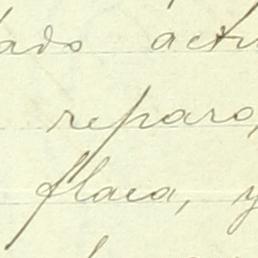 ado actu
reparo,
flaca, y